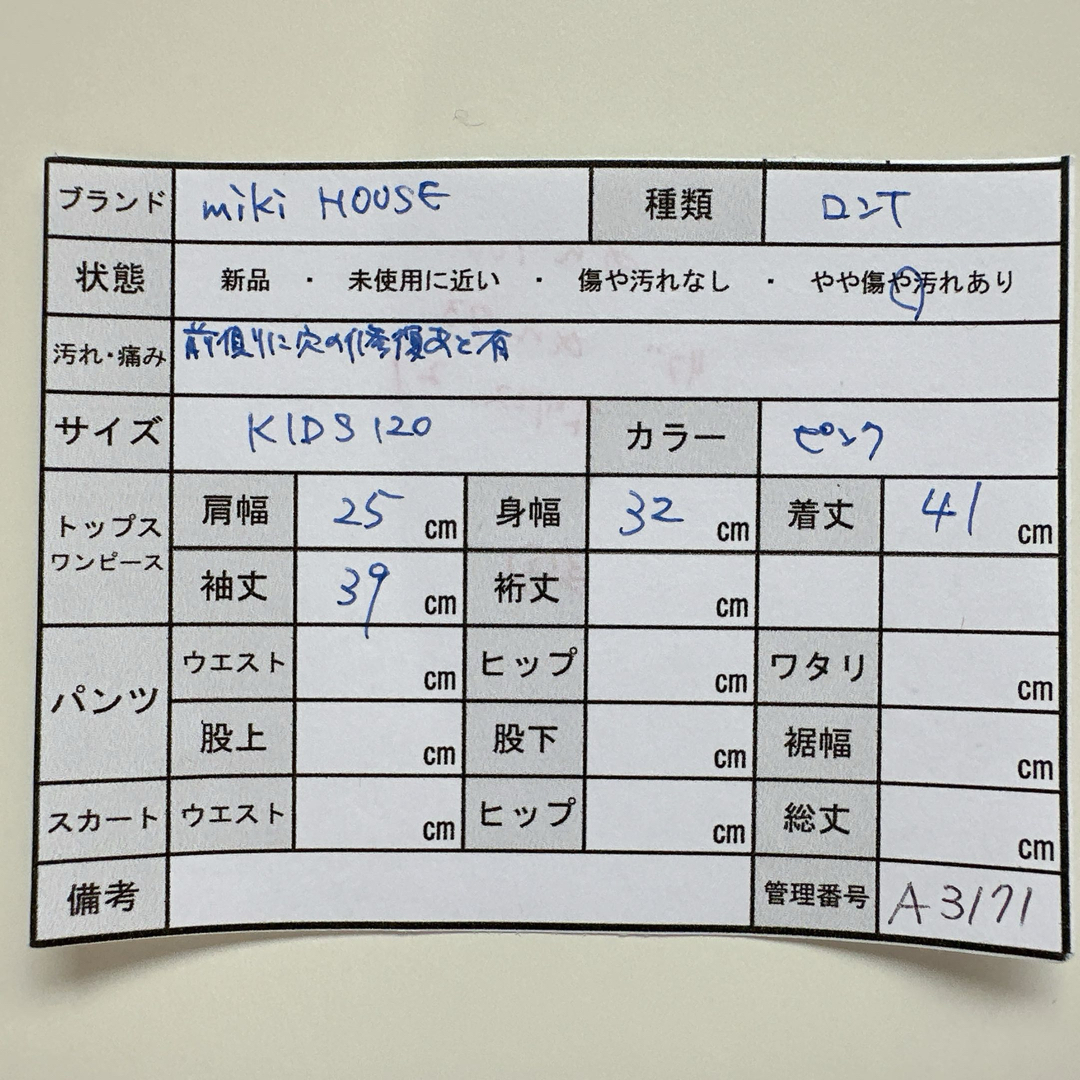 ブランド miki HOUSE 種類 ロンT
状態 新品 ・ 未使用に近い ・ 傷や汚れなし ・ やや傷や汚れあり
汚れ・痛み 前側りに穴の修復あと有
サイズ KIDS 120 カラー ピンク
トップス ワンピース 肩幅 25 cm 身幅 32 cm 着丈 41 cm
袖丈 39 cm 裄丈 cm
パンツ ウエスト cm ヒップ cm ワタリ cm
股上 cm 股下 cm 裾幅 cm
スカート ウエスト cm ヒップ cm 総丈 cm
備考 管理番号 A3171